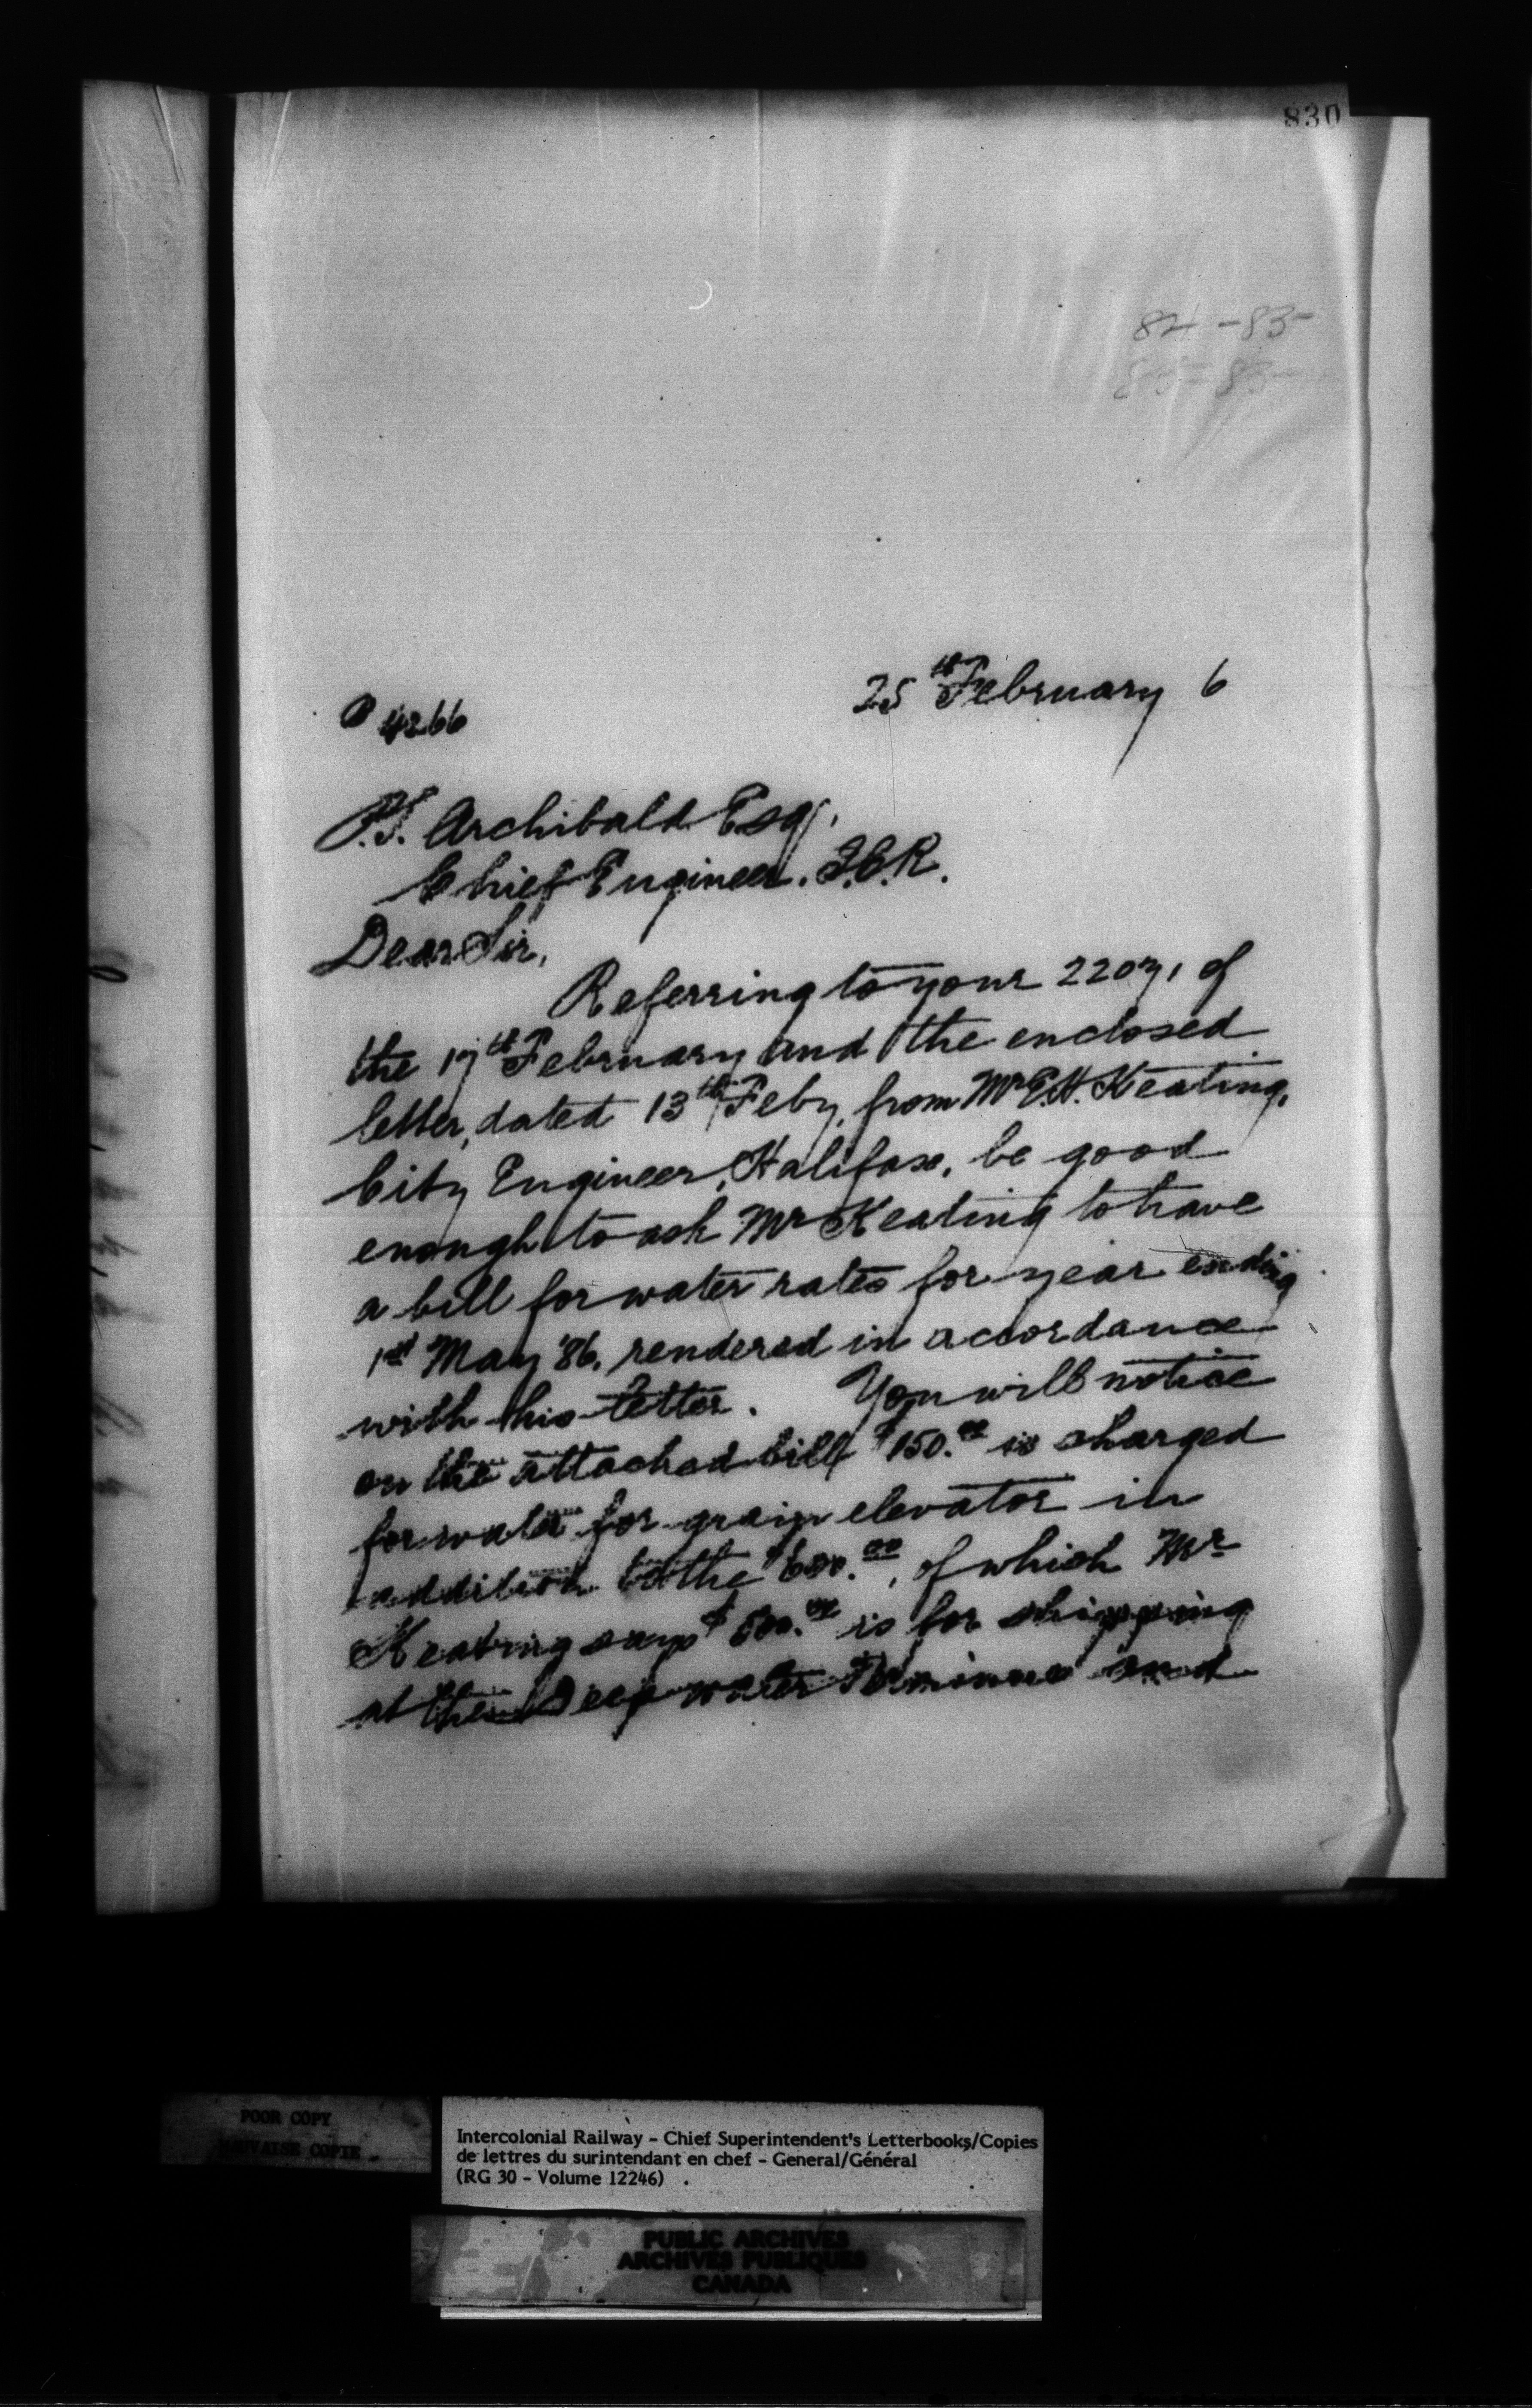 830
84 - 85
85 - 85
25th February 6
P 4266
P.S. Archibald Esq.
Chief Engineer. I.C.R.
Dear Sir,
Referring to your 2207, of
the 17th February and the enclosed
letter, dated 13th Feby, from Mr E.H. Keating,
City Engineer, Halifax, be good
enough to ask Mr Keating to have
a bill for water rates for year ending
1st May '86, rendered in accordance
with his letter. You will notice
on the attached bill $150.00 is charged
for water for grain elevator in
addition to the $600.00, of which Mr
Keating says $500.00 is for shipping
at the Deep water Terminus and
POOR COPY
MAUVAISE COPIE
Intercolonial Railway - Chief Superintendent's Letterbooks/Copies
de lettres du surintendant en chef - General/Général
(RG 30 - Volume 12246)
PUBLIC ARCHIVES
ARCHIVES PUBLIQUES
CANADA